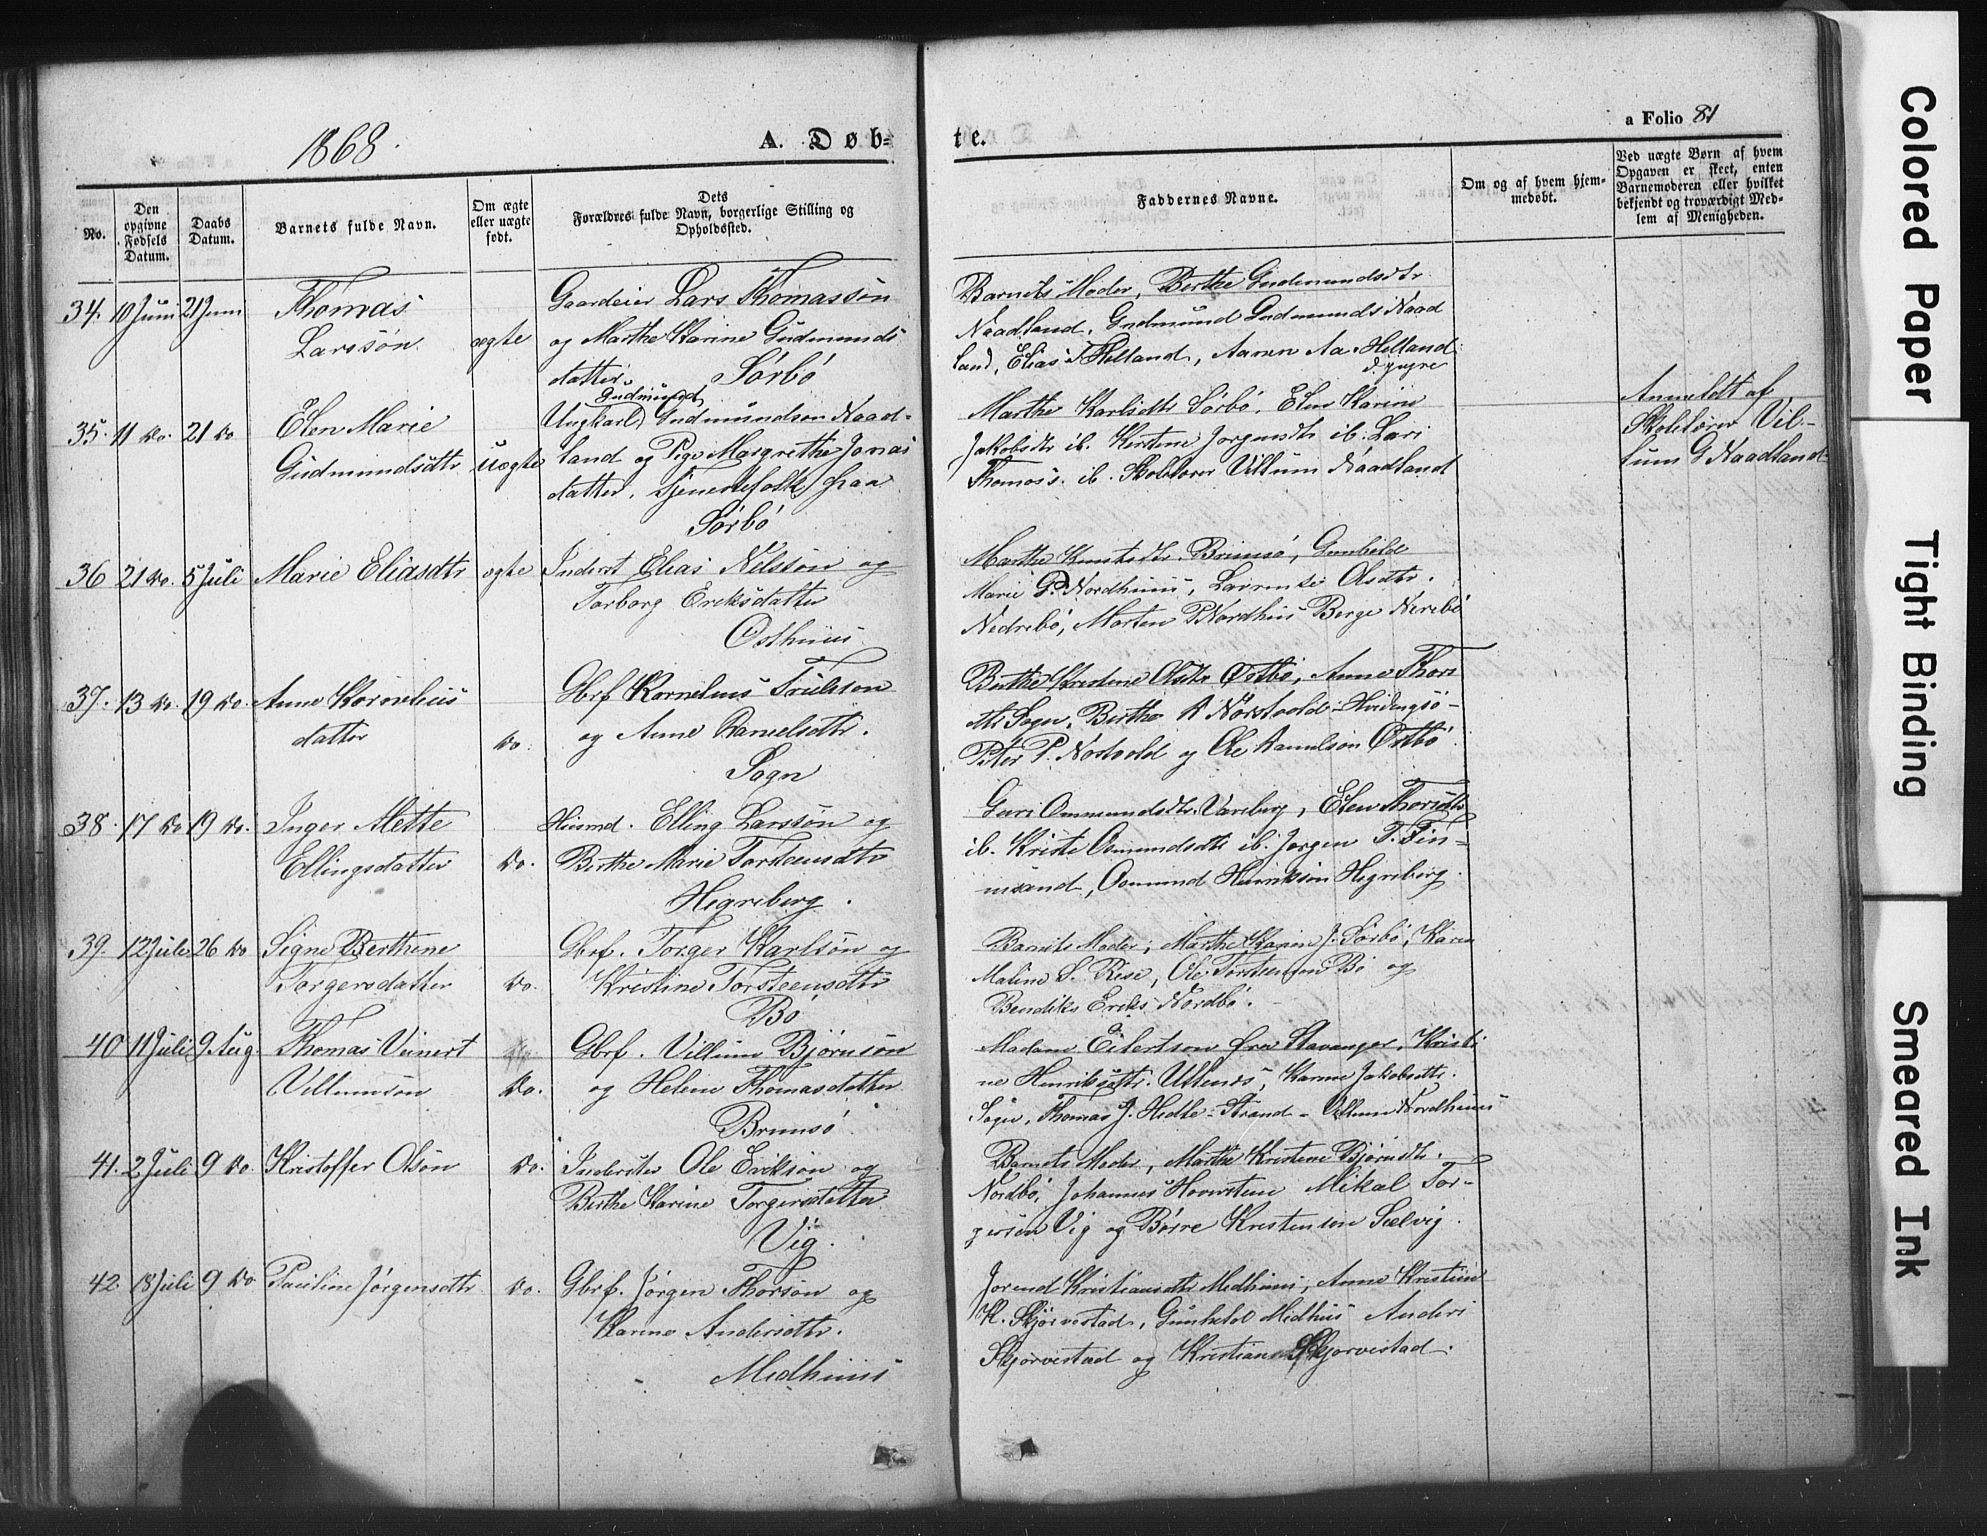 1868.
A. Døb=
te.
a Folio 81
No.
Den opgivne Fødsels Datum.
Daabs Datum.
Barnets fulde Navn.
Om ægte eller uægte født.
Dets Forældres fulde Navn, borgerlige Stilling og Opholdssted.
Faddernes Navne.
Om og af hvem hjem- medøbt.
Ved uægte Børn af hvem Opgaven er skeet, enten Barnemoderen eller hvilket bekjendt og troværdigt Med- lem af Menigheden.
34. 10 Juni 21 Juni
Thomas
Larssøn
ægte
Gaardeier Lars Thomassøn
og Marthe Karine Gudmunds
datter. Sørbø
Barnets Moder, Berthe Gudmundsdtr
Naadland, Gudmund Gudmunds Naad
land, Elias T Helland, Aanen Aa. Helland
d. yngre
35. 11 do. 21 do
Elen Marie
Gudmundsdtr
uægte
Gudmund
Ungkarl Gudmundsøn Naad=
land og Pige Margrethe Jonas
datter, tjenestefolk paa
Sørbø
Marthe Karlsdtr Sørbø, Elen Karine
Jakobsdtr ib. Kirstine Jorgensdtr ib. Lars
Thomas s. ib. Skolelærer Villum Naadland
Anmeldt af
Skolelærer Vil-
lum G Naadland
36 21 do. 5 Juli
Marie Eliasdtr
ægte
Inderst Elias Nilssøn og
Torborg Eriksdatter
Osthuus
Marthe Knutsdtr. Brimsø, Gunhild
Marie P. Nordhuus, Lavrentse Olsdtr.
Nedrebø, Morten P Nordhus Berge Nerebø
37. 13 do. 19 do.
Anne Kornelius
datter
do.
Gbrf Kornelius Trulsson
og Anne Danielsdtr.
Sogn
Berthe Kristine Olsdtr Østbø, Anne Thors
dtr Sogn, Berthe A Norstvold - Hvidingsø -
Peter P. Nortvold og Ole Danielsøn Østbø
38. 17 do 19 do.
Inger Mette
Ellingsdatter
do.
Huusmd. Elling Larssøn og
Birthe Marie Torsteensdtr
Hegreberg.
Guri Ommundsdtr. Vareberg, Elen Thorsdtr
ib. Kristi Osmundsdtr ib. Jorgen T. Fin-
nesand, Osmund Henriksøn Hegreberg.
39. 12 Juli 26 do
Signe Berthine
Torgersdatter
do.
Gbrf. Torger Karlsøn og
Kristine Torsteensdtr
Bø
Barnets Moder, Marthe Karine J. Sørbø, Karen
Maline S. Rese, Ole Torsteensøn Bø og
Bendiks Eriks Nordbø.
40 11 Juli 9 Aug.
Thomas Veinert
Villumsøn
do.
Gbrf. Villum Bjørnsøn
og Helene Thomasdatter
Brimsø
Madam Eilertson fra Stavanger, Kristi
ne Henriksdtr. Utlenes, Karine Jakobsdtr.
Sogn, Thomas J. Hidle - Strand - Villum Nordhuus
41. 2 Juli 9 do
Kristoffer Olsøn
do.
Inderster Ole Eriksøn og
Birthe Karine Torgersdatter
Vig.
Barnets Moder, Marthe Kristine Bjørnsdtr.
Nordbø, Johannes Hovensteen Mikal Tor-
gersen Vig og Børre Kristensen Selvig.
42. 18 Juli 9 do
Pauline Jørgensdtr
do.
Gbrf. Jørgen Thorsøn og
Karine Andersdtr.
Midhuus
Jorend Kristiansdtr Midhuus, Anne Kristine
K. Skjørvestad, Gunhild Midhus Anders
Skjorvestad og Kristian Skjorvestad.
Colored Paper
Tight Binding
Smeared Ink